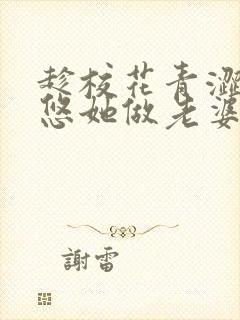 趁校花青澀
悠她做老婆
謝雷